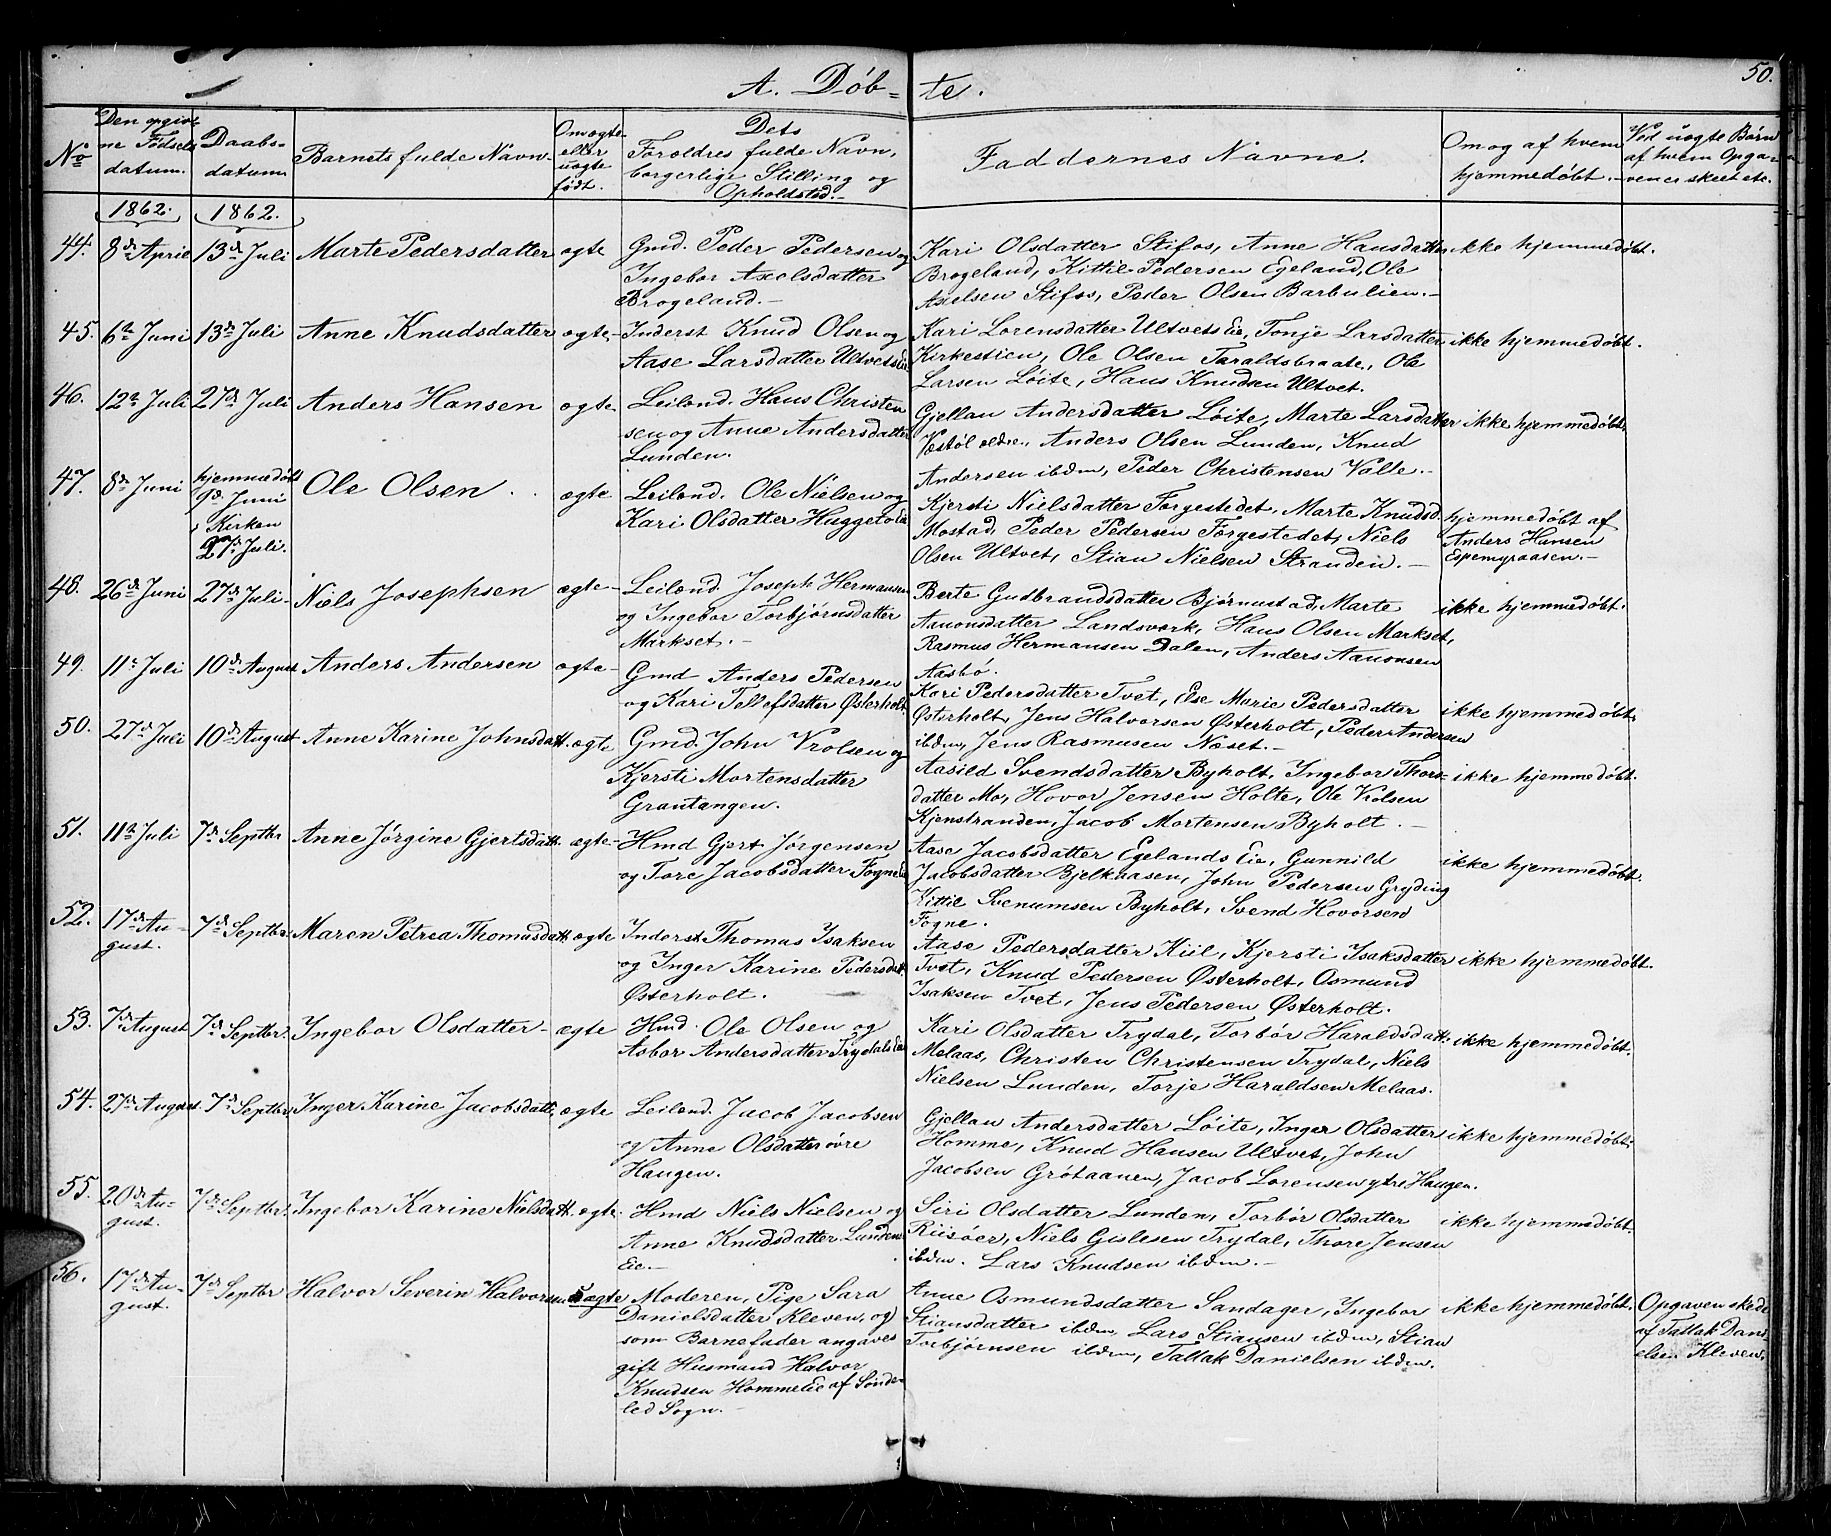 A. Døbte.
50.
No
Den opgivne Fødselsdatum.
Daabsdatum
Barnets fulde Navn.
Om ægte eller uægte født.
Dets Forældres fulde Navn, borgerlige Stilling og Opholdsted.
Faddernes Navne.
Om og af hvem hjemmedøbt.
Ved uægte Børn af hvem Opgavenes skeet etc.
1862. 1862.
44. 8de April 13de Juli Marte Pedersdatter ægte
Gmd. Peder Pedersen og
Ingebor Axelsdatter
Brogeland.
Kari Olsdatter Stifos, Anne Hansdatter
Brogeland, Kittil Pedersen Egeland, Ole
Axelsen Stifos, Peder Olsen Barbulien.
ikke hjemmedøbt.
45. 6te Juni 13de Juli Anne Knudsdatter ægte
Inderst Knud Olsen og
Aase Larsdatter Ultvets Eie
Kari Lorensdatter Ultvets Eie, Tonje Larsdatter
Kirkestien, Ole Olsen Taraldsbraate, Ole
Larsen Løite, Hans Knudsen Ultvet.
ikke hjemmedøbt.
46. 12te Juli 27de Juli Anders Hansen ægte
Leilænd. Hans Christen
sen og Anne Andersdatter
Lunden.
Gjellau Andersdatter Løite, Marte Larsdatter
Vestøl ældre, Anders Olsen Lunden, Knud
Andersen ibdm, Peder Christensen Valle.
ikke hjemmedøbt.
47. 8de Juni hjemmedøbt
9d. Juni
i Kirken
27de Juli.
Ole Olsen ægte
Leilænd. Ole Nielsen og
Kari Olsdatter Huggeto Eie
Kjersti Nielsdatter Torgestedet, Marte Knudsd.
Mostad, Peder Pedersen Torgestedet, Niels
Olsen Ultvet, Stian Nielsen Stranden.
hjemmedøbt af
Anders Hansen
Espemyraasen.
48. 26de Juni 27de Juli Niels Josephsen ægte
Leilænd. Joseph Hermansen
og Ingebor Torbjørnsdatter
Markset.
Berte Gudbrandsdatter Bjørnustad, Marte
Aanonsdatter Landsverk, Hans Olsen Markset,
Rasmus Hermansen Dalen, Anders Aanonsen
Aasbø.
ikke hjemmedøbt.
49. 11te Juli 10de August Anders Andersen ægte
Gmd Anders Pedersen
og Kari Tellefsdatter Østerholt.
Kari Pedersdatter Tvet, Else Marie Pedersdatter
Østerholt, Jens Halvorsen Østerholt, Peder Andersen
ibdm, Jens Rasmusen Næset.
ikke hjemmedøbt.
50. 27de Juli 10de August Anne Karine Johnsdatt. ægte
Gmd. John Vrolsen og
Kjersti Mortensdatter
Grautangen.
Aasild Svendsdatter Byholt, Ingebor Thors-
datter Mo, Hovor Jensen Holte, Ole Vrolsen
Kjenstranden, Jacob Mortensen Byholt.
ikke hjemmedøbt.
51. 11te Juli 7de Septbr Anne Jørgine Gjertsdatt. ægte
Hmd Gjert Jørgensen
og Tore Jacobsdatter Fogne Eie
Aase Jacobsdatter Egelands Eie, Gunnild
Jacobsdatter Bjelkaasen, John Pedersen Gryding
Kittil Svenumsen Byholt, Svend Hovorsen
Fogne.
ikke hjemmedøbt.
52. 17de Au-
gust. 7de Septbr. Maren Petrea Thomasdatt. ægte
Inderst Thomas Isaksen
og Inger Karine Pedersdatt.
Østerholt.
Aase Pedersdatter Kiil, Kjersti Isaksdatter
Tvet, Knud Pedersen Østerholt, Osmund
Isaksen Tvet, Jens Pedersen Østerholt.
ikke hjemmedøbt.
53. 7de August 7de Septbr. Ingebor Olsdatter ægte
Hmd. Ole Olsen og
Asbor Andersdatter Trydals Eie
Kari Olsdatter Trydal, Torbør Haraldsdatt.
Melaas, Christen Christensen Trydal, Niels
Nielsen Lunden, Torje Haraldsen Melaas.
ikke hjemmedøbt.
54. 27de August. 7de Septbr. Inger Karine Jacobsdatt. ægte
Leilænd. Jacob Jacobsen
og Anne Olsdatter øvre
Haugen.
Gjellau Andersdatter Løite, Inger Olsdatter
Homme, Knud Hansen Ultvet, John
Jacobsen Grøtaanen, Jacob Lorensen ytre Haugen.
ikke hjemmedøbt.
55. 20de Au-
gust. 7de Septbr. Ingebor Karine Nielsdatt. ægte.
Hmd Niels Nielsen og
Anne Knudsdatter Lundens
Eie.
Siri Olsdatter Lunden, Torbør Olsdatter
Riisøer, Niels Gislesen Trydal, Thore Jensen
ibdm. Lars Knudsen ibdm.
ikke hjemmedøbt.
56. 17de Au-
gust. 7de Septbr Halvor Severin Halvorsen uægte
Moderen, Pige Sara
Danielsdatter Kleven, og
som Barnefader angaves
gift Husmand Halvor
Knudsen Homme Eie af Sønde-
led Sogn.
Anne Osmundsdatter Sandager, Ingebor
Stiansdatter ibdm, Lars Stiansen ibdm, Stian
Torbjørnsen ibdm, Tallak Danielsen ibdm.
ikke hjemmedøbt.
Opgaven skede
af Tallak Dani-
elsen Kleven.